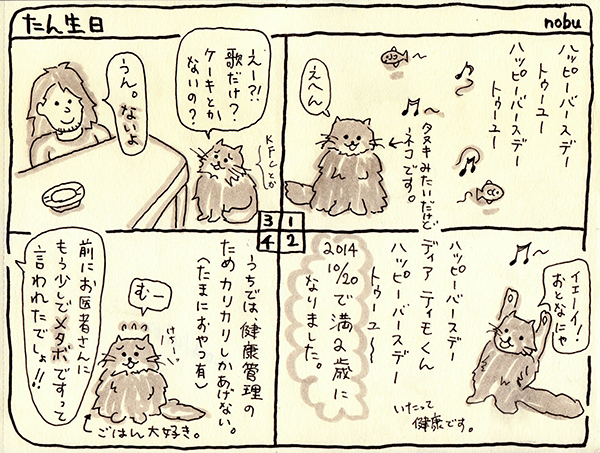 たん生日
nobu
1
ハッピーバースデー
トゥーユー
ハッピーバースデー
トゥーユー
えへん
タヌキみたいだけど
ネコです。
2
ハッピーバースデー
ディア ティモくん
ハッピーバースデー
トゥーユ〜
イエーイ!
おとなにゃ
2014
10/20で満2歳に
なりました。
いたって
健康です。
3
えー?!
歌だけ?
ケーキとか
ないの?
KFCとか
うん。ないよ
4
うちでは、健康管理の
ためカリカリしかあげない。
(たまにおやつ有)
むー
けちー
ごはん大好き。
前にお医者さんに
もう少しでメタボですって
言われたでしょ!!